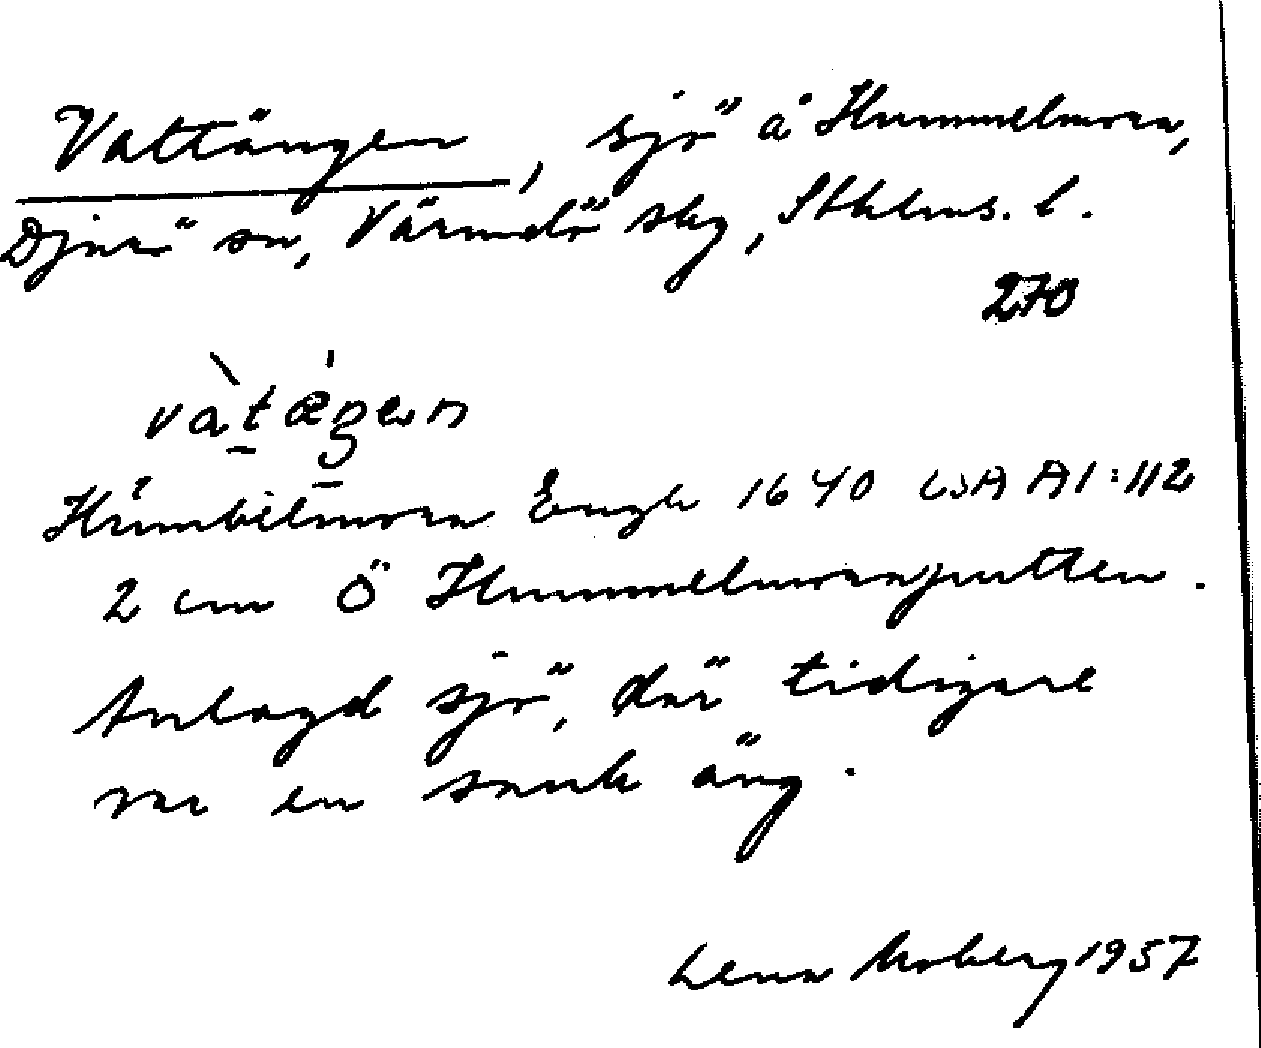 Vattängen, sjö å Hummelmora,
Djurö sn, Värmdö skg, Sthlms. l.
270
vàtǽgen
Humbilmora Engh 1640 LSA A1:112
2 cm Ö Hummelmoraputten.
Anlagd sjö, där tidigare
var en sank äng.
Lena Moberg 1957